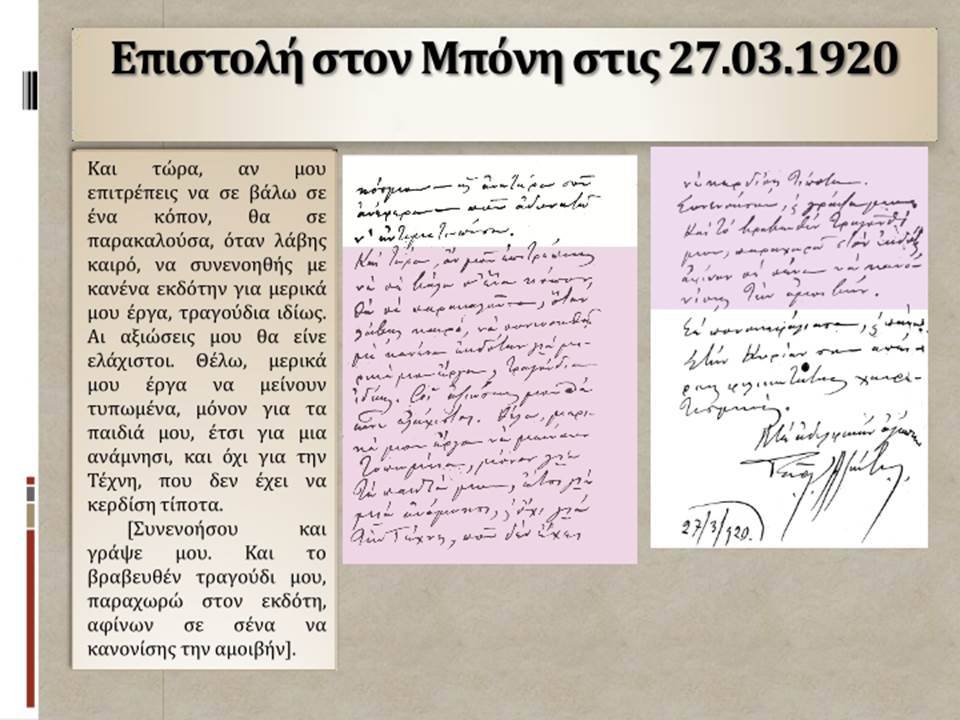 Επιστολή στον Μπόνη στις 27.03.1920
Και τώρα, αν μου
επιτρέπεις να σε βάλω σε
ένα κόπον, θα σε
παρακαλούσα, όταν λάβης
καιρό, να συνενοηθής με
κανένα εκδότην για μερικά
μου έργα, τραγούδια ιδίως.
Αι αξιώσεις μου θα είνε
ελάχιστοι. Θέλω, μερικά
μου έργα να μείνουν
τυπωμένα, μόνον για τα
παιδιά μου, έτσι για μια
ανάμνησι, και όχι για την
Τέχνη, που δεν έχει να
κερδίση τίποτα.
[Συνενοήσου και
γράψε μου. Και το
βραβευθέν τραγούδι μου,
παραχωρώ στον εκδότη,
αφίνων σε σένα να
κανονίσης την αμοιβήν].
Καὶ τώρα, ἄν μοῦ ἐπιτρέπεις
νὰ σὲ βάλω σ' ἕνα κόπον,
θὰ σὲ παρακαλοῦσα, ὅταν
λάβης καιρό, νὰ συνενοηθῆς
μὲ κανένα ἐκδότην γιὰ με-
ρικά μου ἔργα, τραγούδια
ἰδίως. Αἱ ἀξιώσεις μου θὰ
εἶνε ἐλάχιστοι. Θέλω, μερι-
κά μου ἔργα νὰ μείνουν
τυπωμένα, μόνον γιὰ
τὰ παιδιά μου, ἔτσι γιὰ
μιὰ ἀνάμνησι, κ' ὄχι γιὰ
τὴν Τέχνη, ποῦ δὲν ἔχει
νὰ κερδίση τίποτα.
Συνενοήσου, κ' γράψε μου.
Καὶ τὸ βραβευθὲν τραγοῦδι
μου, παραχωρῶ στὸν ἐκδότη,
ἀφίνων σὲ σένα νὰ κανο-
νίσης τὴν ἀμοιβήν.
27/3/920.